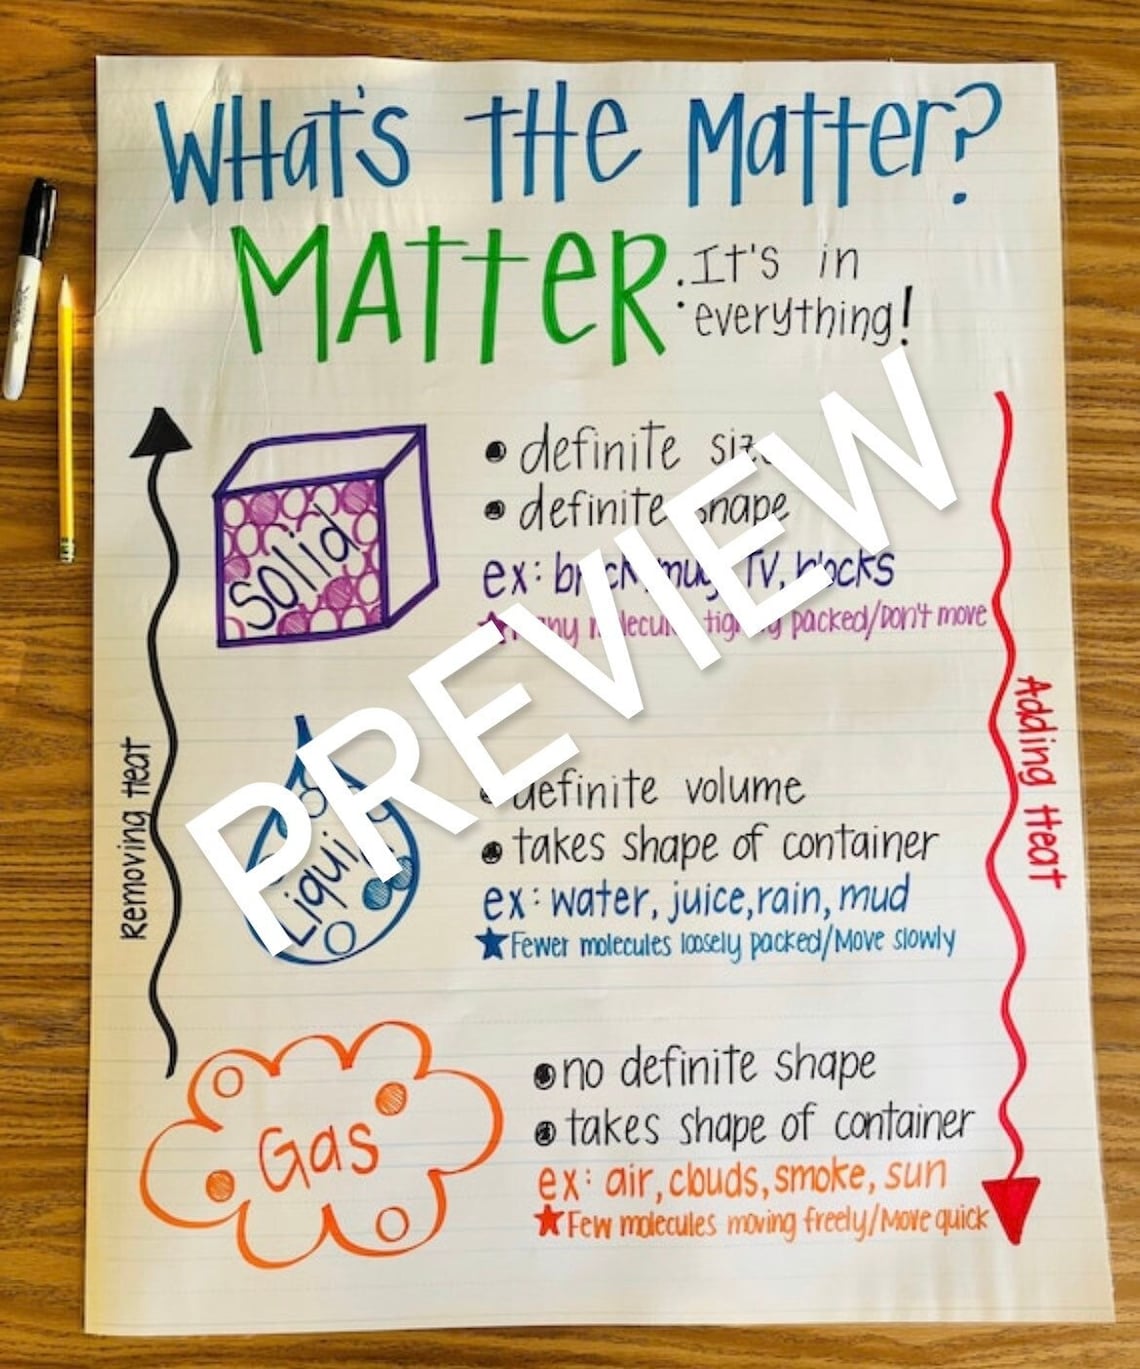 What's the Matter?
MATTER: It's in
everything!
Solid
• definite size
• definite shape
ex: brick, mug, TV, blocks
★ Many molecules tightly packed/Don't move
Removing Heat
Adding Heat
Liquid
• definite volume
• takes shape of container
ex: water, juice, rain, mud
★ Fewer molecules loosely packed/Move slowly
Gas
• no definite shape
• takes shape of container
ex: air, clouds, smoke, sun
★ Few molecules moving freely/Move quick
PREVIEW